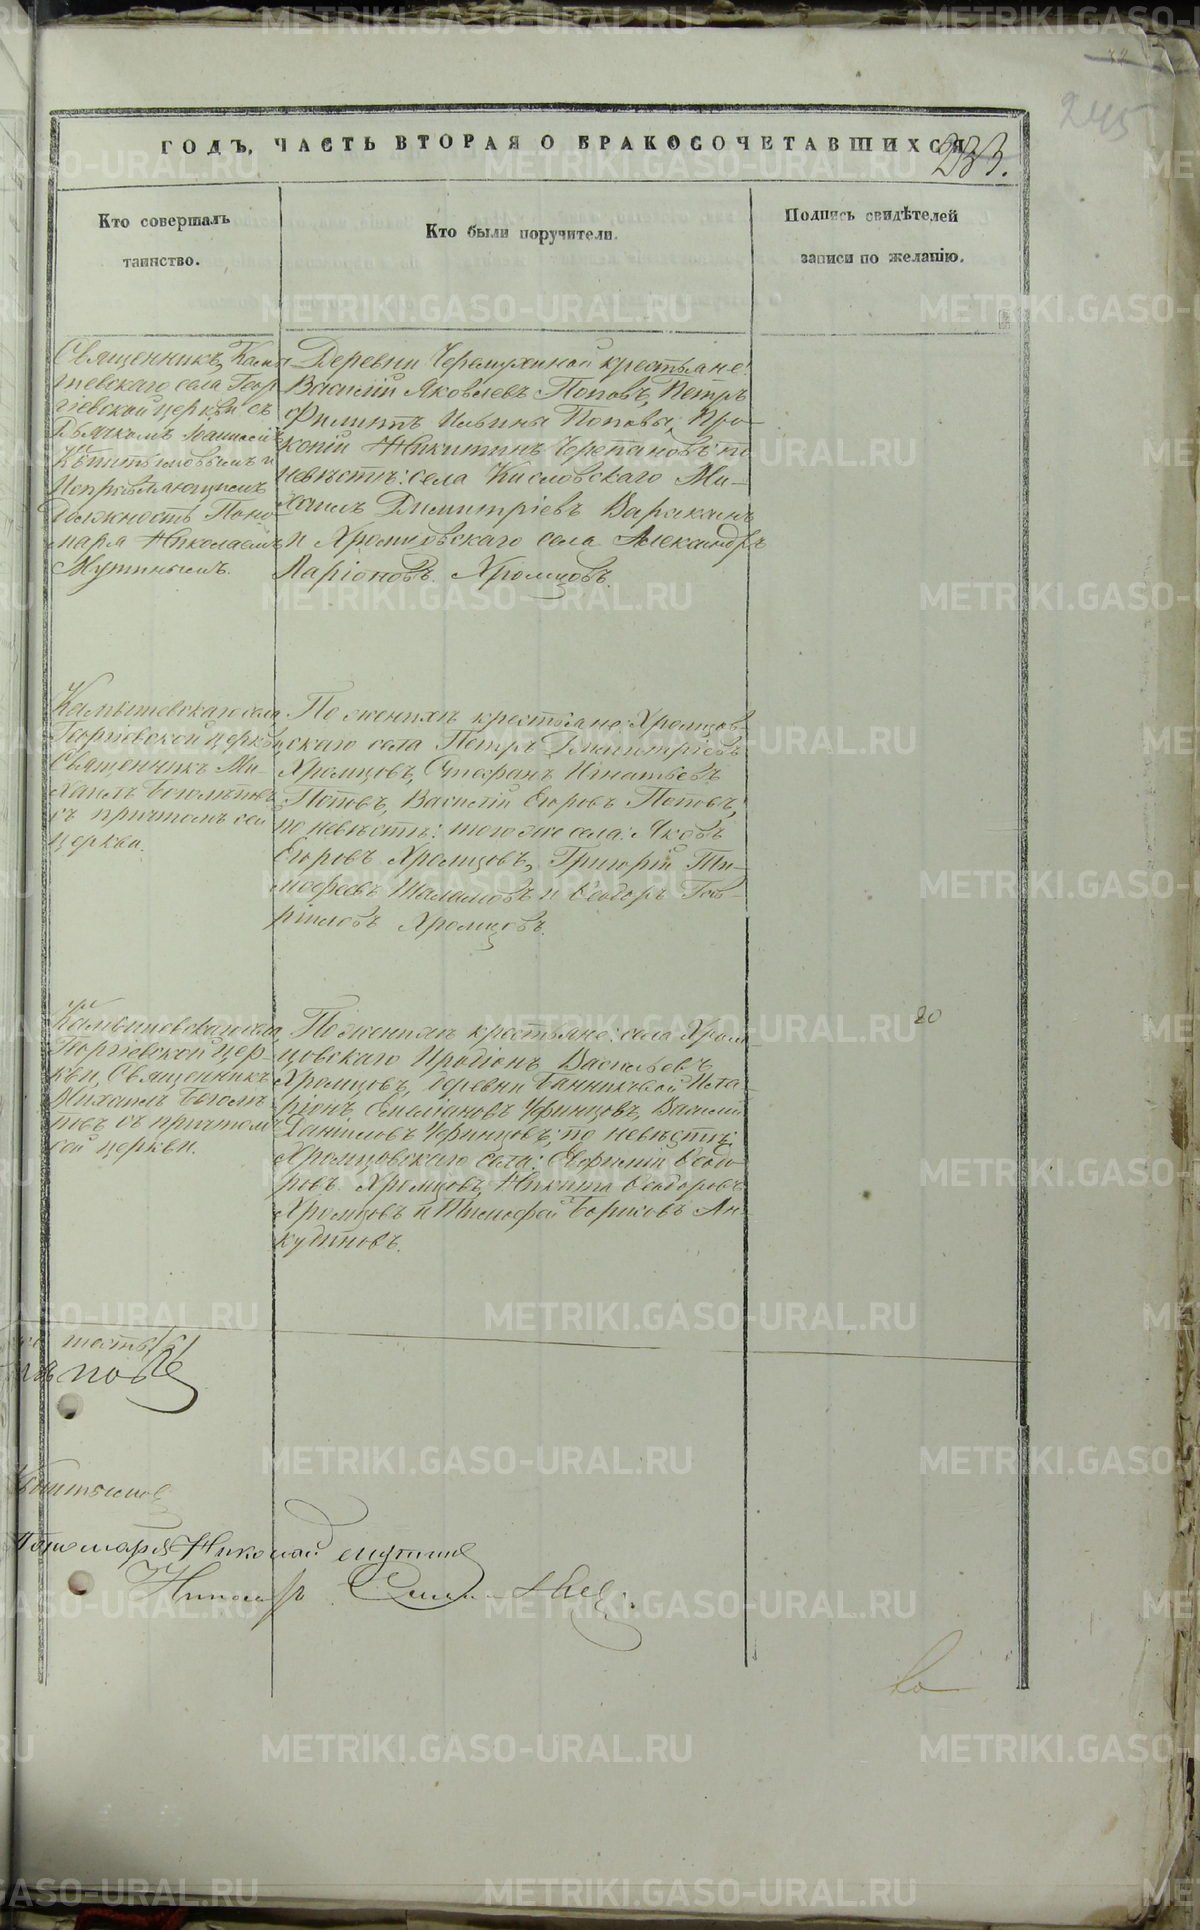 245
ГОДЪ, ЧАСТЬ ВТОРАЯ О БРАКОСОЧЕТАВШИХСЯ
233.
Кто совершалъ
таинство.
Кто были поручители.
Подпись свидѣтелей
записи по желанію.
Священникъ Камы-
шевскаго села Геор
гіевской церкви съ
Дьячкомъ
и
исправляющимъ
должность Поно
маря Николаемъ
Мутинымъ.
Деревни Черемухиной крестьяне:
Василій Яковлевъ Поповъ, Петръ
Филиппъ Ильины Поповы, Про-
копій Никитинъ Черепановъ; по
невѣстѣ: села Кисловскаго Ми-
хаилъ Димитріевъ
и Хромцовскаго села Александръ
Ларіоновъ Хромцовъ.
Камышевскаго села
Георгіевской церкви
Священникъ Ми-
хаилъ Боголѣповъ
съ причтомъ сей
церкви.
По женихѣ крестьяне: Хромцов
скаго села Петръ Димитріевъ
Хромцовъ, Стефанъ Игнатьевъ
Поповъ, Василій Егоровъ Поповъ;
по невѣстѣ: того же села: Яковъ
Егоровъ Хромцовъ, Григорій Ти-
мофеевъ Шаламовъ и Ѳеодоръ Гав-
риловъ Хромцовъ.
Камышевскаго села
Георгіевской цер-
кви Священникъ
Михаилъ Боголѣ
повъ съ причтомъ
сей церкви.
По женихѣ крестьяне: села Хром-
цовскаго Иродіонъ Васильевъ
Хромцовъ, деревни Банниковой Ила-
ріонъ Емеліановъ Чернцовъ, Василій
Даніиловъ Чернцовъ; по невѣстѣ:
Хромцовскаго села: Евфимій Ѳеодо-
ровъ Хромцовъ, Никита Ѳеодоровъ
Хромцовъ и Тимофей Борисовъ Ан-
кудиновъ.
20
Пономарь Николай Мутинъ
METRIKI.GASO-URAL.RU